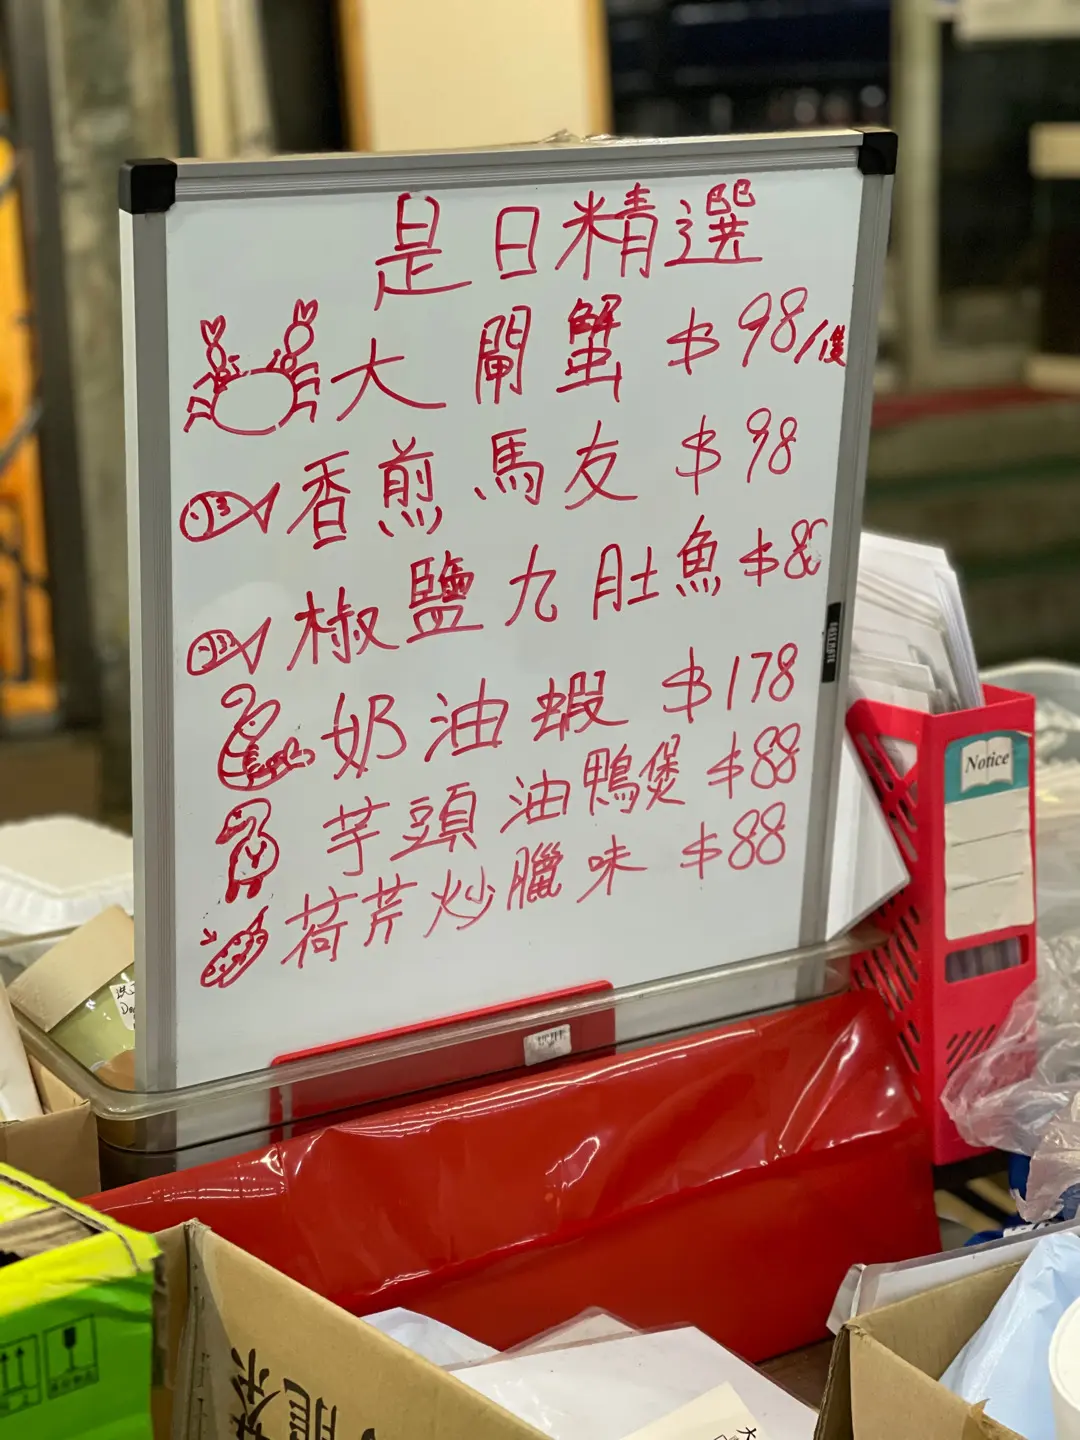 是日精選
大閘蟹 $98/隻
香煎馬友 $98
椒鹽九肚魚 $88
奶油蝦 $178
芋頭油鴨煲 $88
荷芹炒臘味 $88
Notice